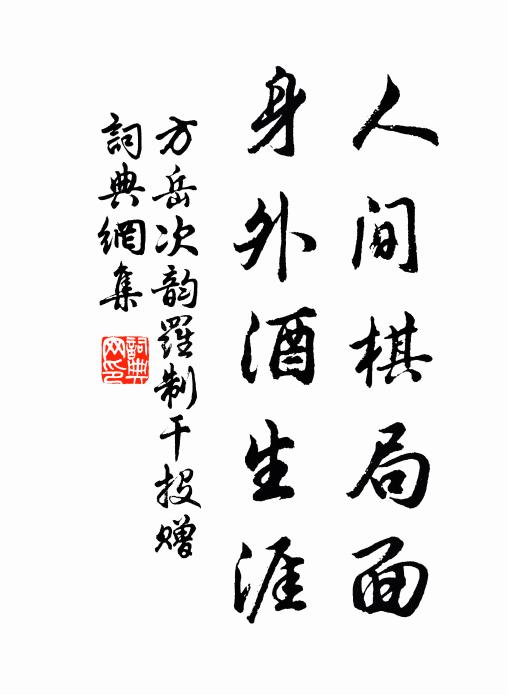 人间棋局面
身外酒生涯
方岳次韵羅制干投赠
詞典網集
詞典
网印